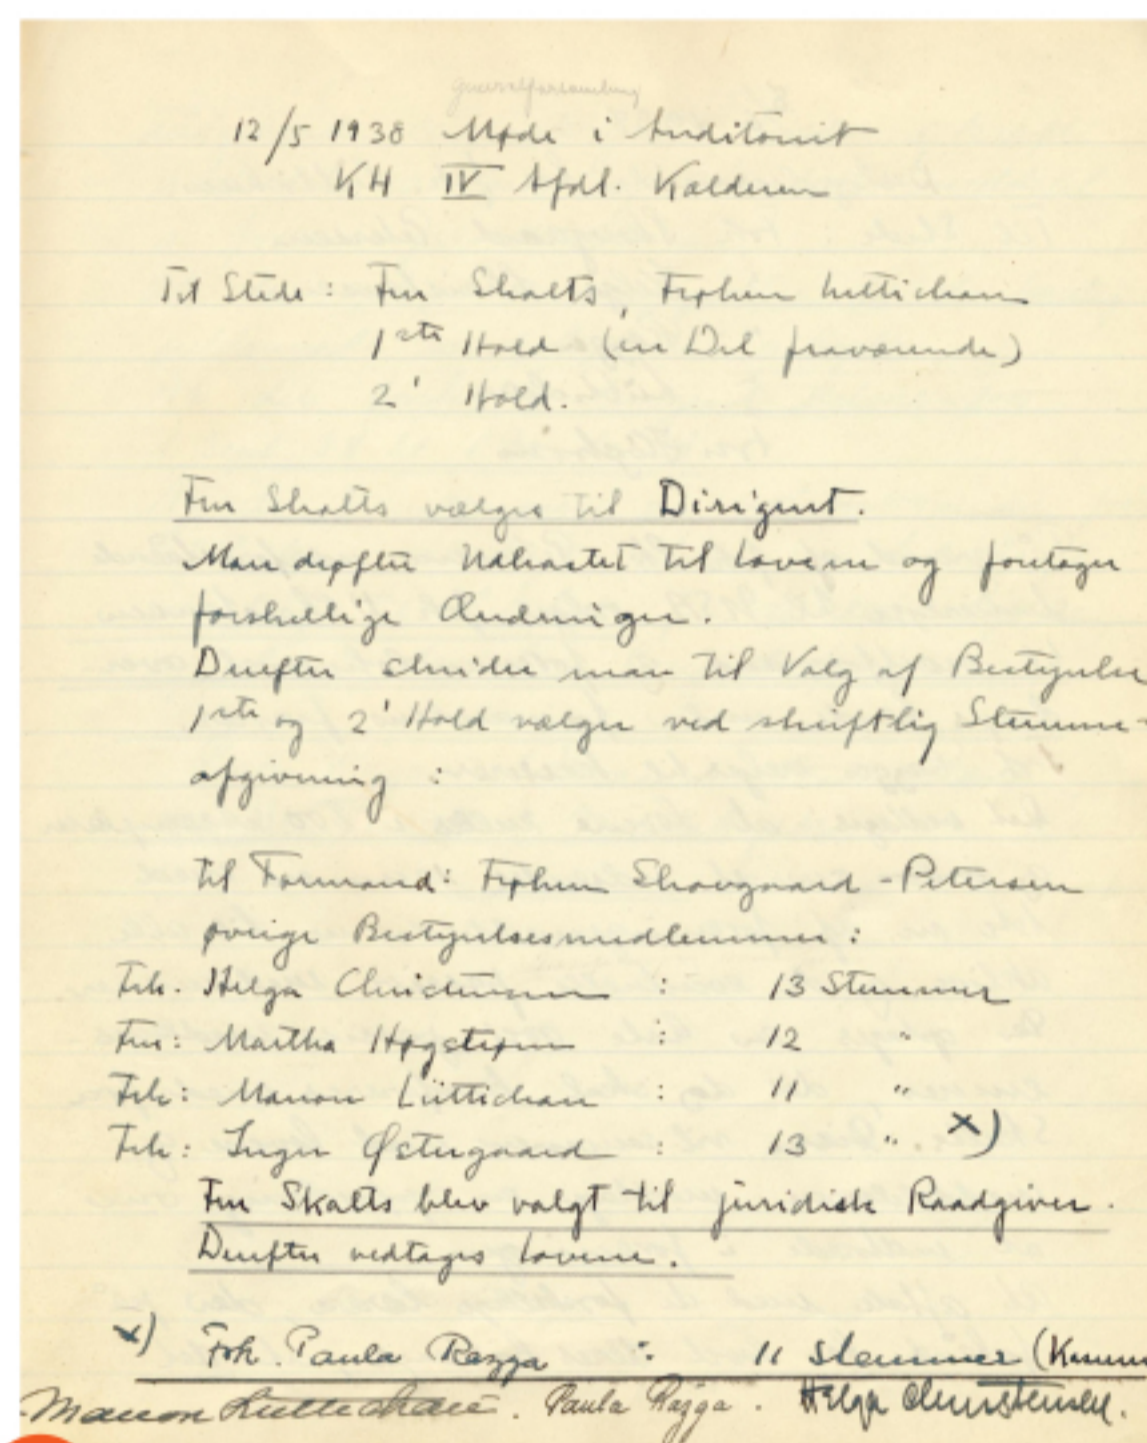 Generalforsamling
12/5 1938 Møde i Auditoriet
KH IV Afdl. Kælderen
Til Stede: Fru Skalts, Frøken Lüttichau
1ste Hold (en Del fraværende)
2' Hold.
Fru Skalts vælges til Dirigent.
Man drøfter Udkastet til Lovene og foretager
forskellige Ændringer.
Derefter skrider man til Valg af Bestyrelse
1ste og 2' Hold vælger ved skriftlig Stemme-
afgivning :
til Formand: Frøken Skovgaard-Petersen
øvrige Bestyrelsesmedlemmer :
Frk. Helga Christensen : 13 Stemmer
Fru: Martha Høgstrøm : 12 "
Frk: Manon Lüttichau : 11 "
Frk: Inger Østergaard : 13 " x)
Fru Skalts blev valgt til juridisk Raadgiver.
Derefter vedtages Lovene.
x) Frk. Paula Razga : 11 Stemmer
Manon Lüttichau. Paula Razga. Helga Christensen.